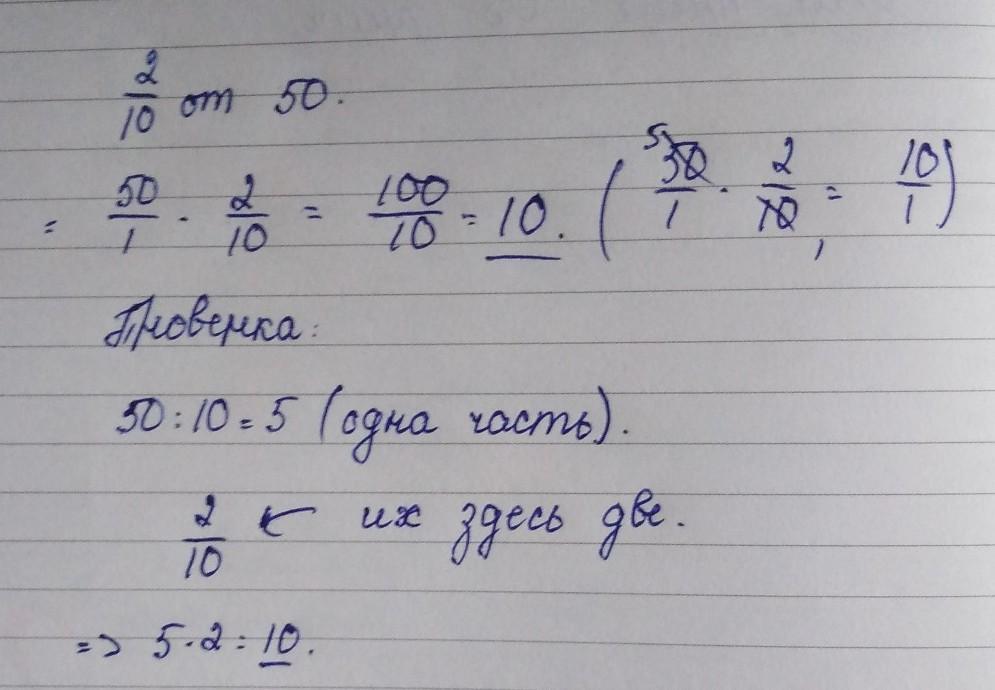 2/10 от 50.
= 50/1 · 2/10 = 100/10 = 10. ( 5 50/1 · 2/10 = 10/1 )
Проверка:
50 : 10 = 5 (одна часть).
2/10 ← их здесь две.
=> 5 · 2 = 10.